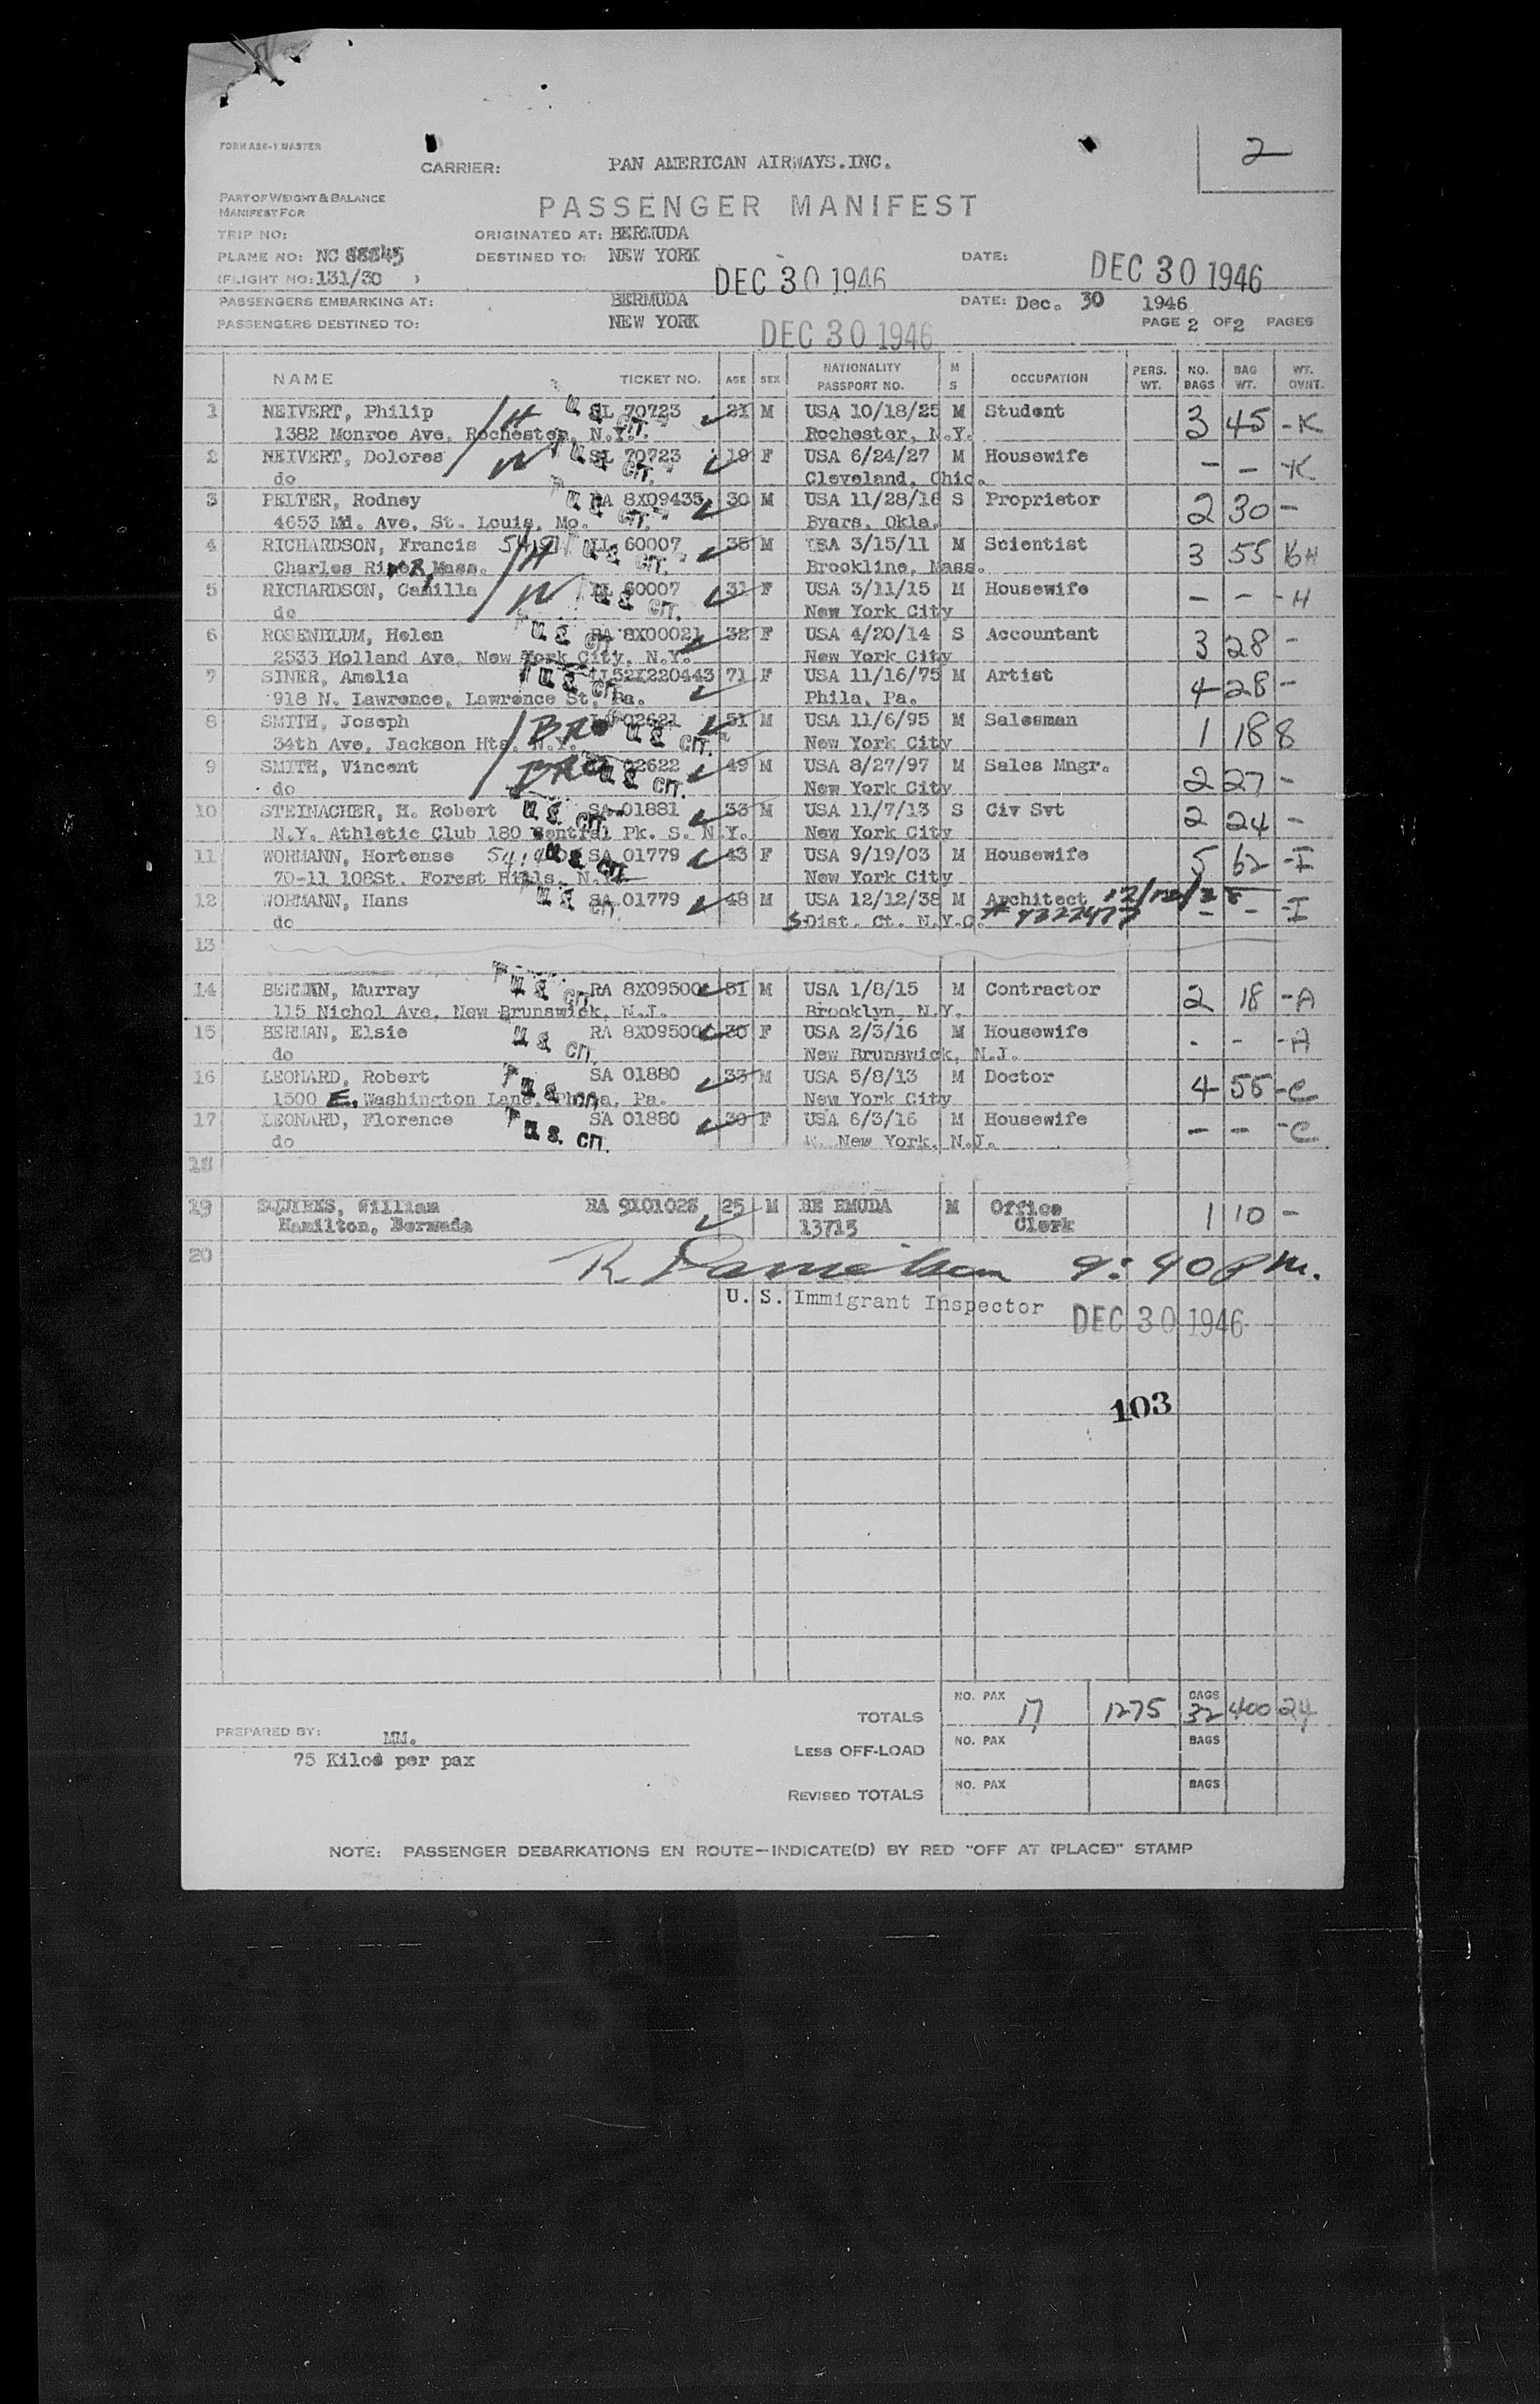 FORM ASK-1 MASTER
2
CARRIER: PAN AMERICAN AIRWAYS.INC.
PART OF WEIGHT & BALANCE
MANIFEST FOR
PASSENGER MANIFEST
TRIP NO: ORIGINATED AT: BERMUDA
PLANE NO: NC 88845 DESTINED TO: NEW YORK DATE: DEC 30 1946
(FLIGHT NO: 131/30 ) DEC 30 1946
PASSENGERS EMBARKING AT: BERMUDA DATE: Dec. 30 1946
PASSENGERS DESTINED TO: NEW YORK DEC 30 1946 PAGE 2 OF 2 PAGES
NAME TICKET NO. AGE SEX NATIONALITY PASSPORT NO. M S OCCUPATION PERS. WT. NO. BAGS BAG WT. WT. OVNT.
1 NEIVERT, Philip /H U.S. CIT. SL 70723 21 M USA 10/18/25 M Student 3 45 -K
1382 Monroe Ave, Rochester, N.Y. Rochester, N.Y.
2 NEIVERT, Dolores /W U.S. CIT. SL 70723 19 F USA 6/24/27 M Housewife - - -K
do Cleveland, Ohio.
3 PELTER, Rodney U.S. CIT. RA 8X09435 30 M USA 11/28/16 S Proprietor 2 30 -
4653 Md. Ave, St. Louis, Mo. Byars, Okla.
4 RICHARDSON, Francis /H U.S. CIT. 60007 35 M USA 3/15/11 M Scientist 3 55 16H
Charles RiveR, Mass. Brookline, Mass.
5 RICHARDSON, Camilla /W U.S. CIT. 60007 31 F USA 3/11/15 M Housewife - - -H
do New York City
6 ROSENBLUM, Helen U.S. CIT. RA 8X00021 32 F USA 4/20/14 S Accountant 3 28 -
2533 Holland Ave, New York City, N.Y. New York City
7 SINER, Amelia U.S. CIT. 52X220443 71 F USA 11/16/75 M Artist 4 28 -
918 N. Lawrence, Lawrence St, Pa. Phila, Pa.
8 SMITH, Joseph /BRO U.S. CIT. 02621 51 M USA 11/6/95 M Salesman 1 18 8
34th Ave, Jackson Hts, N.Y. New York City
9 SMITH, Vincent /BRO U.S. CIT. 02622 49 M USA 8/27/97 M Sales Mngr. 2 27 -
do New York City
10 STEINACHER, H. Robert U.S. CIT. SA 01881 33 M USA 11/7/13 S Civ Svt 2 24 -
N.Y. Athletic Club 180 Central Pk. S. N.Y. New York City
11 WORMANN, Hortense U.S. CIT. SA 01779 43 F USA 9/19/03 M Housewife 5 62 -I
70-11 108St. Forest Hills, N.Y. New York City
12 WORMANN, Hans U.S. CIT. SA 01779 48 M USA 12/12/38 M Architect - - -I
do S Dist. Ct. N.Y.C.
13
14 BERMAN, Murray U.S. CIT. RA 8X09500 31 M USA 1/8/15 M Contractor 2 18 -A
115 Nichol Ave, New Brunswick, N.J. Brooklyn, N.Y.
15 BERMAN, Elsie U.S. CIT. RA 8X09500 30 F USA 2/3/16 M Housewife - - -A
do New Brunswick, N.J.
16 LEONARD, Robert U.S. CIT. SA 01880 33 M USA 5/8/13 M Doctor 4 55 -C
1500 E. Washington Lane, Phila, Pa. New York City
17 LEONARD, Florence U.S. CIT. SA 01880 30 F USA 6/3/16 M Housewife - - -C
do W. New York, N.J.
18
19 SQUIRES, William RA 9X01028 25 M BERMUDA M Office 1 10 -
Hamilton, Bermuda 13715 Clerk
20 9:40 pm.
U. S. Immigrant Inspector DEC 30 1946
103
TOTALS NO. PAX 17 1275 BAGS 32 400 24
PREPARED BY: MM.
LESS OFF-LOAD NO. PAX BAGS
75 Kilos per pax
REVISED TOTALS NO. PAX BAGS
NOTE: PASSENGER DEBARKATIONS EN ROUTE—INDICATE(D) BY RED "OFF AT (PLACE)" STAMP